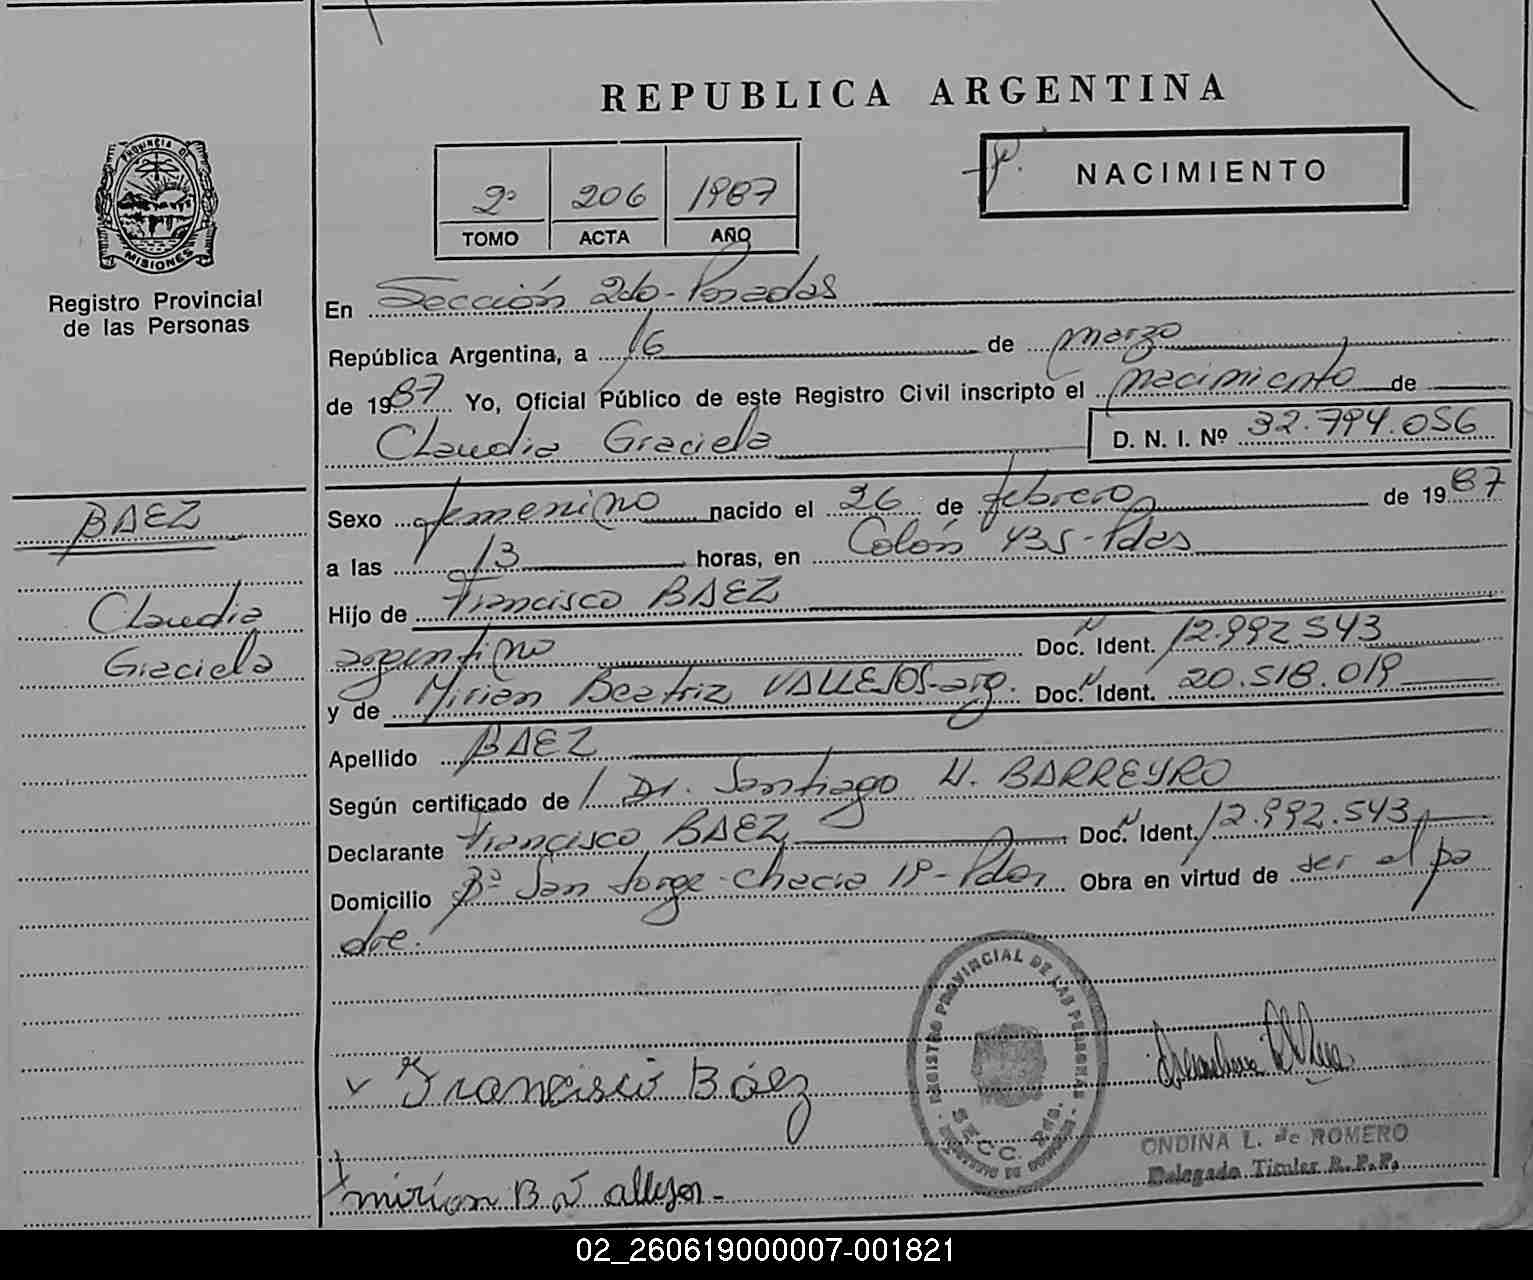 REPUBLICA ARGENTINA
PROVINCIA DE
MISIONES
Registro Provincial
de las Personas
2º 206 1987
TOMO ACTA AÑO
NACIMIENTO
En Sección 2da-Posadas
República Argentina, a 16 de marzo
de 1987 Yo, Oficial Público de este Registro Civil inscripto el nacimiento de
Claudia Graciela D. N. I. Nº 32.794.056
BAEZ
Claudia
Graciela
Sexo femenino nacido el 26 de febrero de 1987
a las 13 horas, en Colón 435-Pdas
Hijo de Francisco BAEZ
argentino Doc. Ident. 12.992.543
y de Mirian Beatriz VALLEJOS-arg. Doc. Ident. 20.518.019
Apellido BAEZ
Según certificado de Dr. Santiago H. BARREYRO
Declarante Francisco BAEZ Doc. Ident. 12.992.543
Domicilio Bº San Jorge-Chacra 19-Pdas Obra en virtud de ser el pa
dre.
REGISTRO PROVINCIAL DE LAS PERSONAS
SECC. 2da.
Francisco Báez
ONDINA L. de ROMERO
Delegado Titular R. P. P.
mirian B Vallejos-
02_260619000007-001821